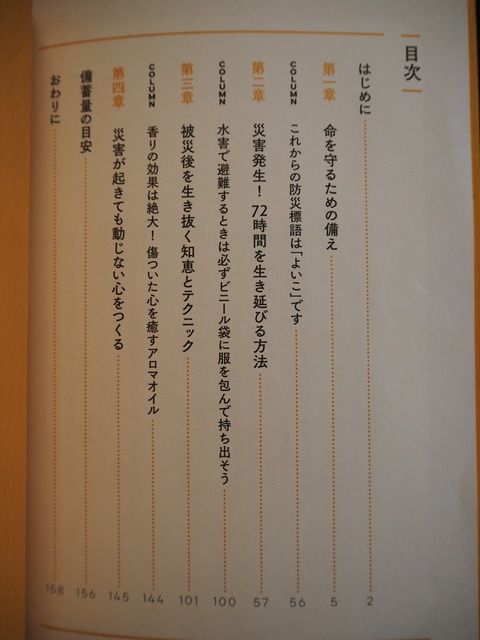 目次
はじめに 2
第一章 命を守るための備え 5
COLUMN これからの防災標語は「よいこ」です 56
第二章 災害発生！ 72時間を生き延びる方法 57
COLUMN 水害で避難するときは必ずビニール袋に服を包んで持ち出そう 100
第三章 被災後を生き抜く知恵とテクニック 101
COLUMN 香りの効果は絶大！ 傷ついた心を癒すアロマオイル 144
第四章 災害が起きても動じない心をつくる 145
備蓄量の目安 156
おわりに 158